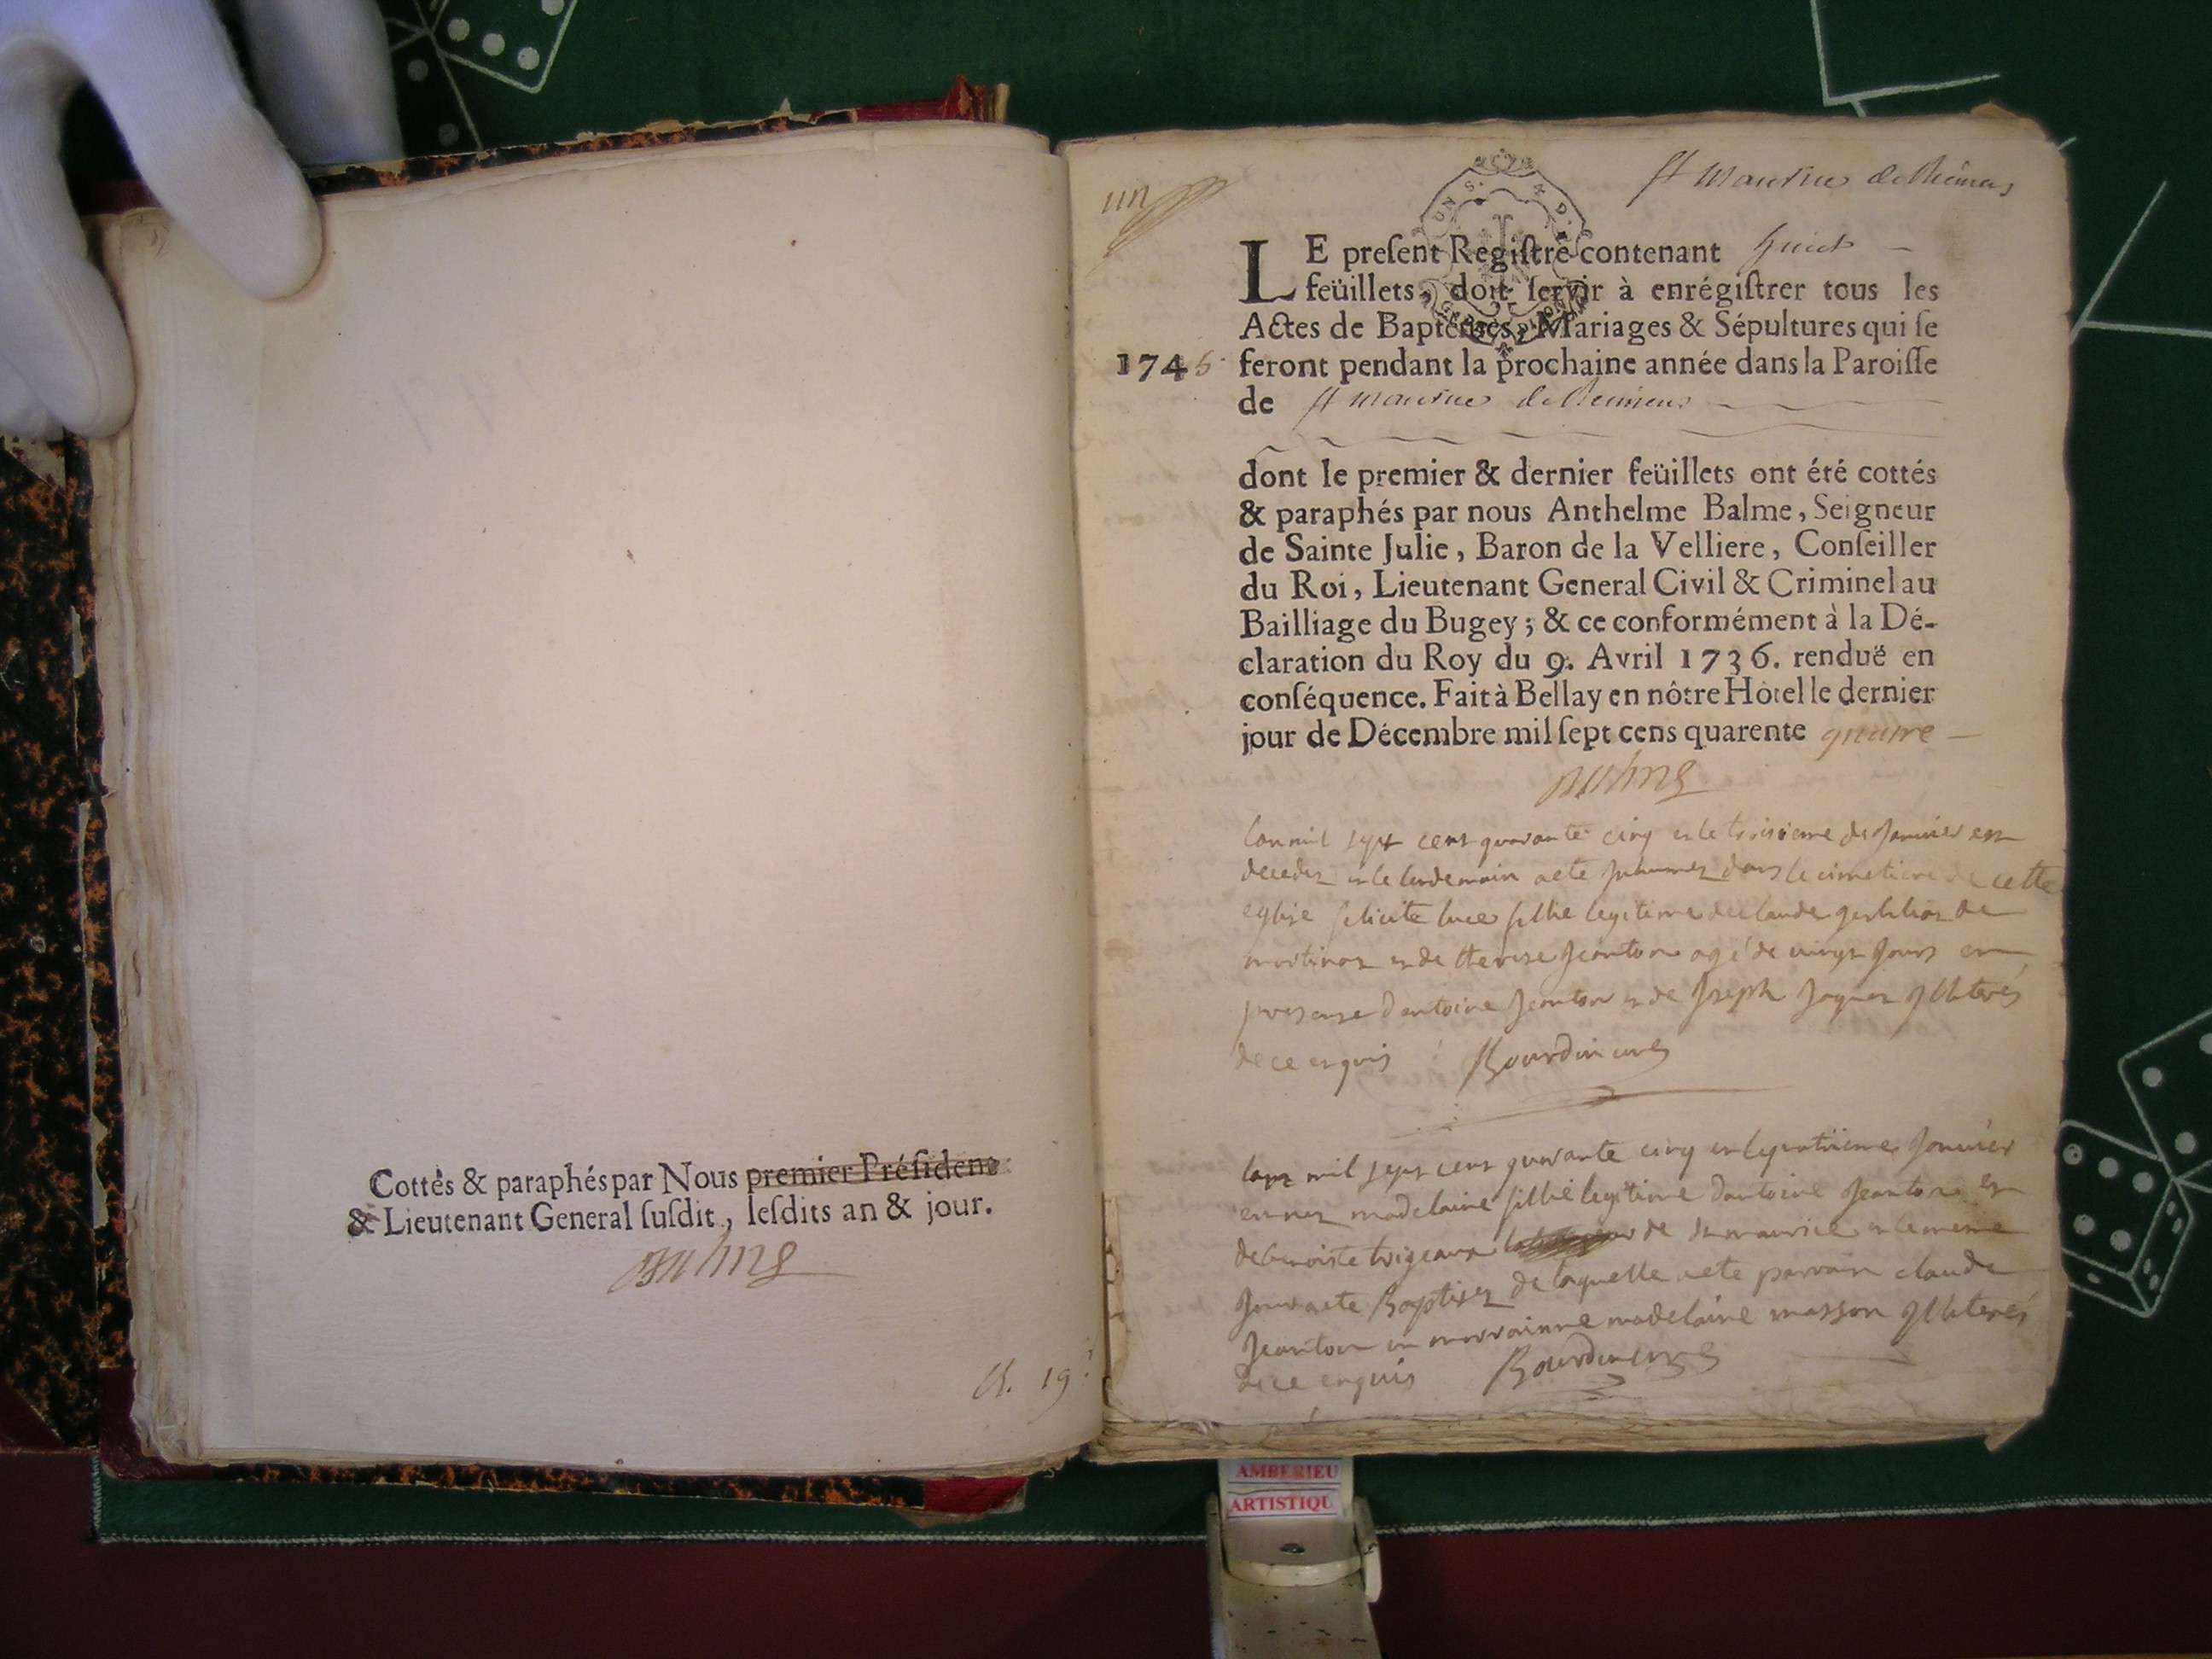 Cottés & paraphés par Nous premier Préſident
& Lieutenant General ſuſdit, leſdits an & jour.
Balme
un
St Maurice de Remens
LE preſent Regiſtre contenant huict
feüillets, doit ſervir à enrégiſtrer tous les
Actes de Baptêmes, Mariages & Sépultures qui ſe
1745 feront pendant la prochaine année dans la Paroiſſe
de St Maurice de Remens
dont le premier & dernier feüillets ont été cottés
& paraphés par nous Anthelme Balme, Seigneur
de Sainte Julie, Baron de la Velliere, Conſeiller
du Roi, Lieutenant General Civil & Criminel au
Bailliage du Bugey; & ce conformément à la Dé-
claration du Roy du 9. Avril 1736. renduë en
conſéquence. Fait à Bellay en nôtre Hôtel le dernier
jour de Décembre mil ſept cens quarente quatre
Balme
lan mil sept cent quarante cinq et le troisieme de Janvier est
decedez et le lendemain a ete Inhumez dans le cimetiere de cette
eglise felicite luce fillie legitime de claude
et de therese Jeanton agé de vingt Jours en
presence dantoine Jeanton et de Joseph Jaquet Illiterés
de ce enquis Bourdin curé
lan mil sept cent quarante cinq et le quatrieme Janvier
est nez madelaine fillie legitime dantoine Jeanton et
de benoiste de st maurice et le meme
Jour a ete Baptisez de laquelle a ete parrain claude
Jeanton et marrainne madelaine masson Illiterés
de ce enquis Bourdin curé
AMBERIEU
ARTISTIQU